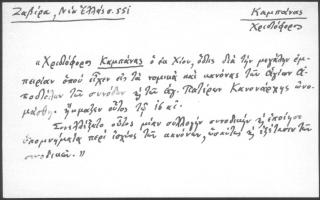 Ζαβίρα, Νέα Ἑλλάς σ. 551
Καμπάνας
Χριστόφορος
«Χριστόφορος Καμπάνας ὁ ἐκ Χίου, οὗτος διὰ τὴν μεγάλην ἐμ-
πειρίαν ὁποῦ εἶχεν εἰς τὰ νομικὰ καὶ κανόνας τῶν Ἁγίων Ἀ-
ποστόλων τῶν συνόδων καὶ τῶν ἁγ. Πατέρων Κανονάρχης ὠνο-
μάσθη. ἤκμαζεν οὗτος τῷ
Συνελέξατο οὗτος μίαν συλλογὴν συνοδικὴν καὶ ἐποίησε
ὑπομνήματα περὶ ἰσχύος τῶν κανόνων, ὡσαύτως καὶ ἐξέτασιν τῶν
συνοδικῶν.»